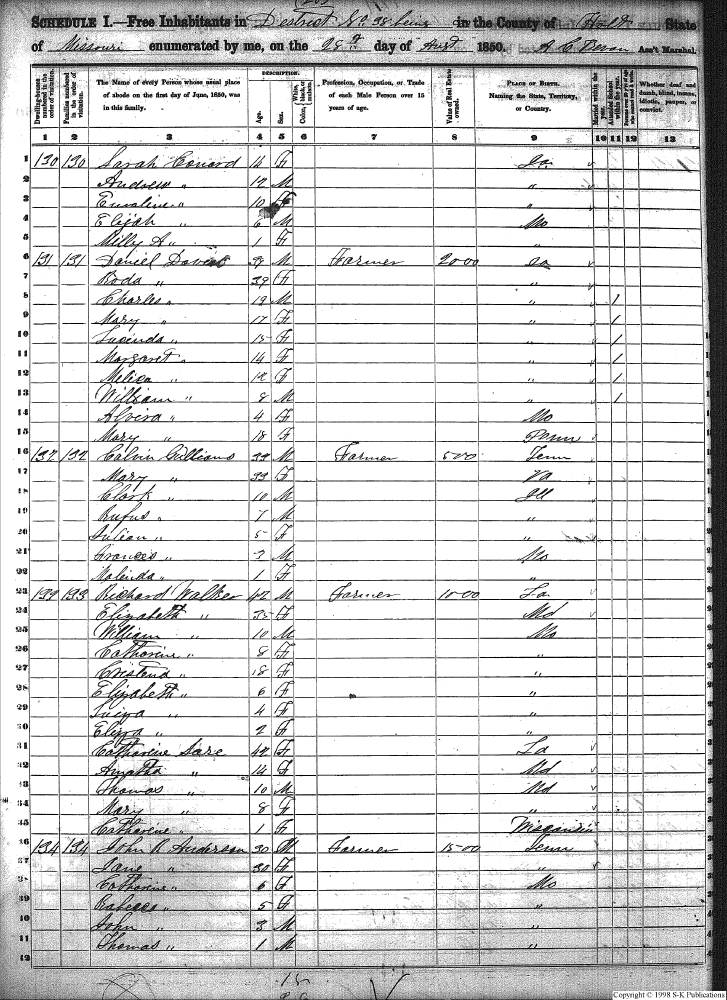 SCHEDULE I.—Free Inhabitants in District No 38 being in the County of Holt State
of Missouri enumerated by me, on the 28th day of Augt 1850. A C Ass't Marshal.
Dwelling-houses numbered in the order of visitation.
Families numbered in the order of visitation.
The Name of every Person whose usual place of abode on the first day of June, 1850, was in this family.
DESCRIPTION.
Age.
Sex.
White, black, or mulatto.
Color,
Profession, Occupation, or Trade of each Male Person over 15 years of age.
Value of Real Estate owned.
PLACE OF BIRTH. Naming the State, Territory, or Country.
Married within the year.
Attended School within the year.
Persons over 20 y'rs of age who cannot read & write.
Whether deaf and dumb, blind, insane, idiotic, pauper, or convict.
1 2 3 4 5 6 7 8 9 10 11 12 13
1 130 130 Sarah 14 F
2 Andrew " 12 M "
3 Emaline " 10 F "
4 Elijah " 6 M Mo
5 Milly A " 1 F "
6 131 131 Daniel 39 M Farmer 2000
7 Roda " 39 F "
8 Charles " 19 M " 1
9 Mary " 17 F " 1
10 Lucinda " 15 F " 1
11 Margaret " 14 F " 1
12 " 12 F " 1
13 William " 8 M " 1
14 Alvira " 4 F Mo
15 Mary " 18 F Tenn
16 132 132 Calvin Gulliams 33 M Farmer 500 Tenn
17 Mary " 33 F Va
18 Clark " 10 M Ill
19 Rufus " 7 M "
20 Julian " 5 F "
21 Frances " 3 M Mo
22 Malinda " 1 F "
23 133 133 Richard Walker 42 M Farmer 1000
24 Elizabeth " 35 F Md
25 William " 10 M Mo
26 Catharine " 8 F "
27 " 8 F "
28 Elizabeth " 6 F "
29 " 4 F "
30 Eliza " 2 F "
31 Catharine 42 F
32 " 14 F Md
33 Thomas " 10 M Md
34 Mary " 8 F "
35 Catharine " 1 F Wisconsin
36 134 134 John R Anderson 30 M Farmer 1500 Tenn
37 Jane " 30 F "
38 Catharine " 6 F Mo
39 Rebecca " 5 F "
40 John " 3 M "
41 Thomas " 1 M "
42
Copyright © 1998 S-K Publications